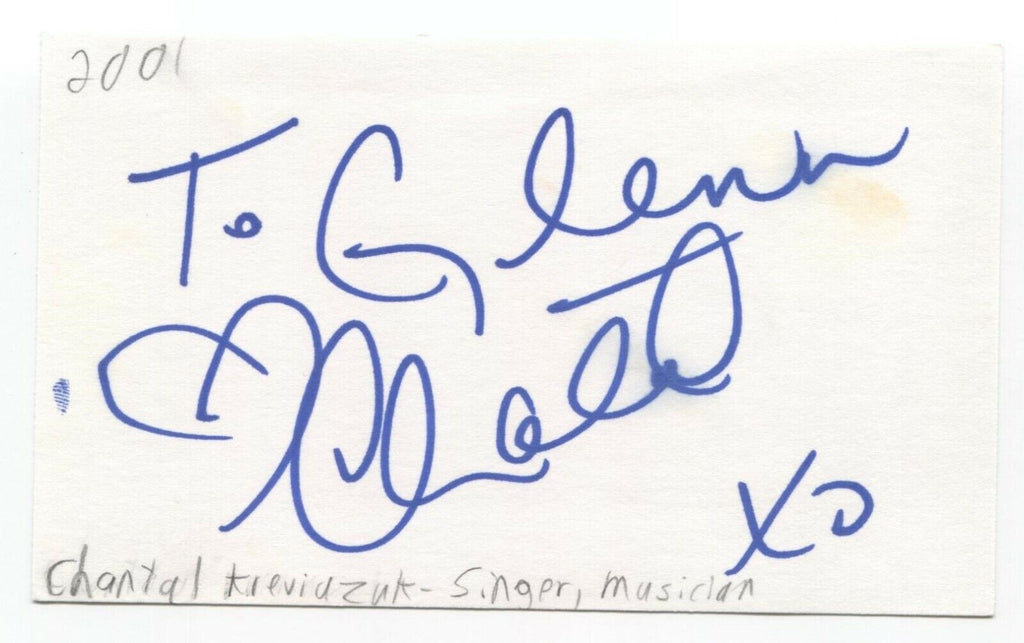 2001
To Glenn
Chantal
XO
Chantal Kreviazuk - Singer, Musician